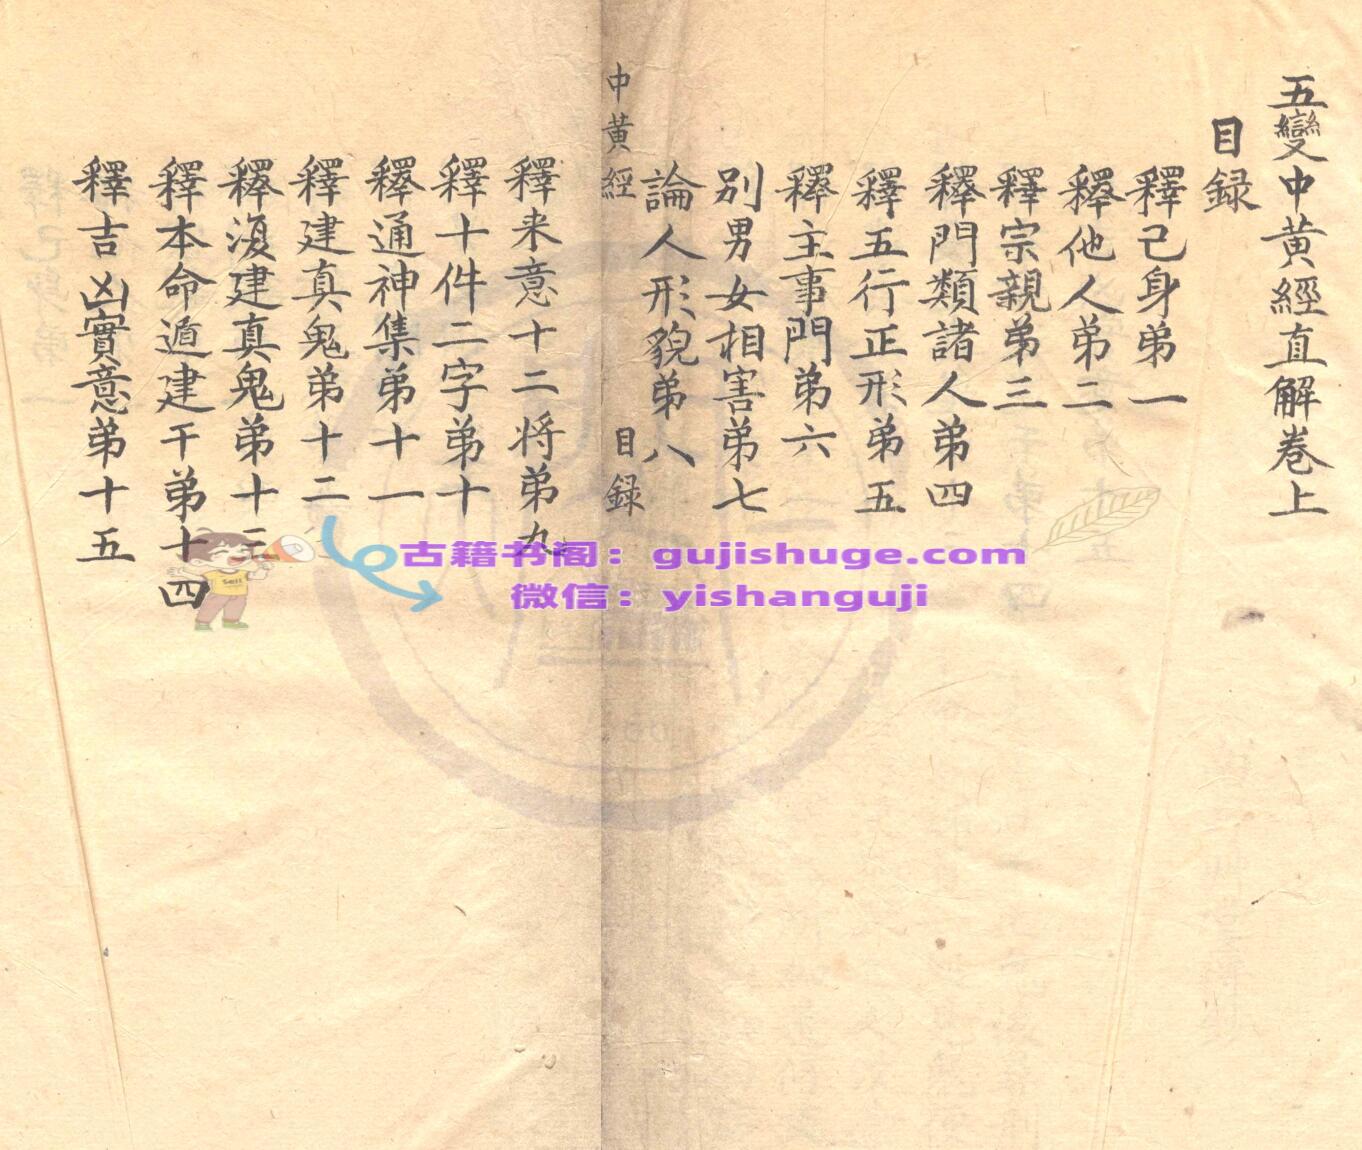 五變中黄經直解卷上
目録
釋己身弟一
釋他人弟二
釋宗親弟三
釋門類諸人弟四
釋五行正形弟五
釋主事門弟六
别男女相害弟七
論人形貌弟八
中黄經 目録
釋来意十二将弟九
釋十件二字弟十
釋通神集弟十一
釋建真鬼弟十二
釋復建真鬼弟十三
釋本命遁建干弟十四
釋吉凶實意弟十五
古籍书阁：gujishuge.com
微信：yishanguji